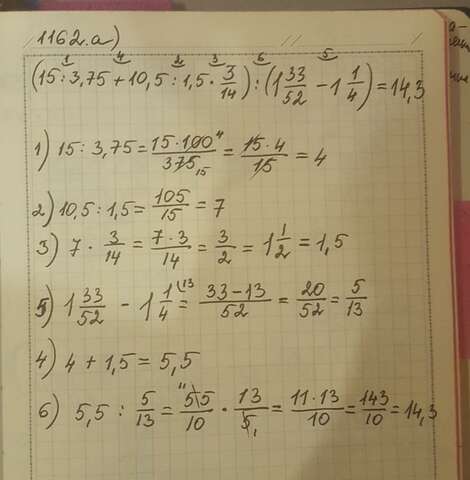 1162.а)
1 4 2 3 6 5
(15 : 3,75 + 10,5 : 1,5 · 3/14) : (1 33/52 − 1 1/4) = 14,3
1) 15 : 3,75 = 15·100 4/375 15 = 15·4/15 = 4
2) 10,5 : 1,5 = 105/15 = 7
3) 7 · 3/14 = 7·3/14 = 3/2 = 1 1/2 = 1,5
5) 1 33/52 − 1 1/4 (13 = 33−13/52 = 20/52 = 5/13
4) 4 + 1,5 = 5,5
6) 5,5 : 5/13 = 11 55/10 · 13/5 1 = 11·13/10 = 143/10 = 14,3